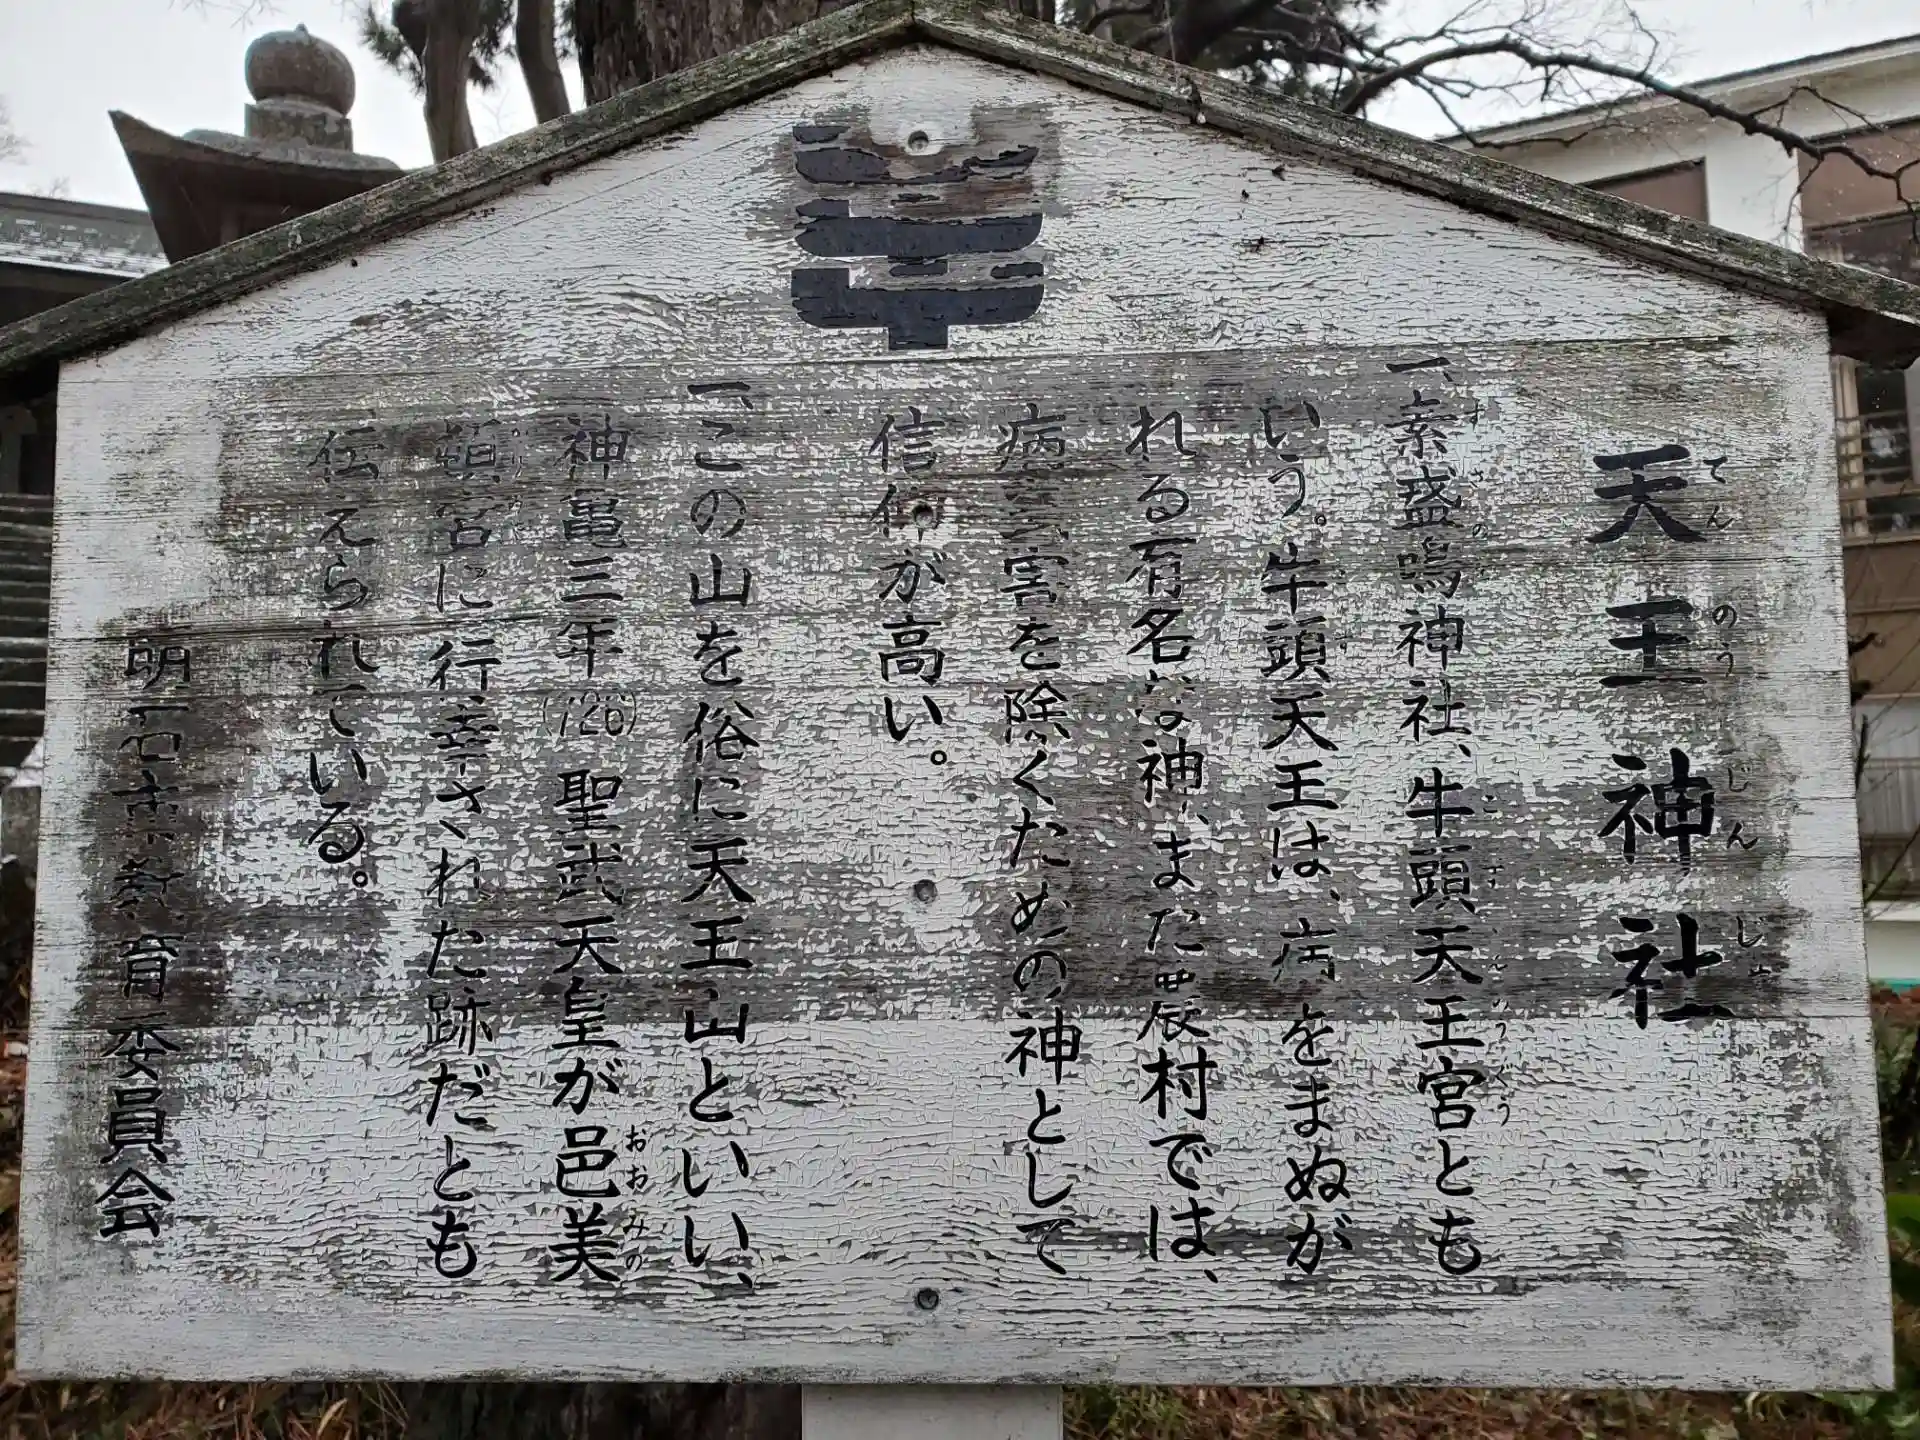 天王神社
てんのうじんじゃ
一、素盛鳴神社、牛頭天王宮とも
いう。牛頭天王は、病をまぬが
れる有名な神、また農村では、
病虫害を除くための神として
信仰が高い。
一、この山を俗に天王山といい、
神亀三年(726)聖武天皇が邑美
おおみの
頓宮に行幸された跡だとも
伝えられている。
明石市教育委員会